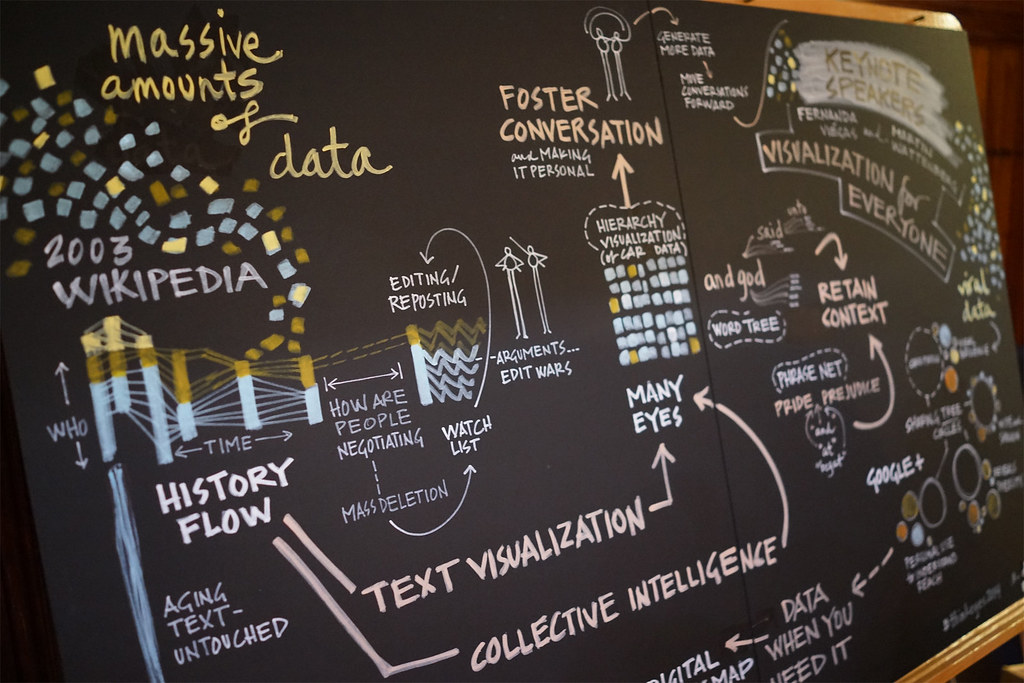 massive
amounts
of
data
2003
WIKIPEDIA
WHO
TIME
HISTORY
FLOW
AGING
TEXT-
UNTOUCHED
HOW ARE
PEOPLE
NEGOTIATING
MASS DELETION
EDITING/
REPOSTING
WATCH
LIST
ARGUMENTS...
EDIT WARS
TEXT VISUALIZATION
COLLECTIVE INTELLIGENCE
FOSTER
CONVERSATION
and MAKING
IT PERSONAL
GENERATE
MORE DATA
MOVE
CONVERSATIONS
FORWARD
HIERARCHY
VISUALIZATION
(of CAR DATA)
MANY
EYES
KEYNOTE
SPEAKERS
FERNANDA
VIÉGAS and MARTIN
WATTENBERG
VISUALIZATION for
EVERYONE
said
and god
WORD TREE
RETAIN
CONTEXT
PHRASE NET
PRIDE, PREJUDICE
and
at
viral
data
GOOGLE+
DATA
WHEN YOU
NEED IT
DIGITAL
MAP